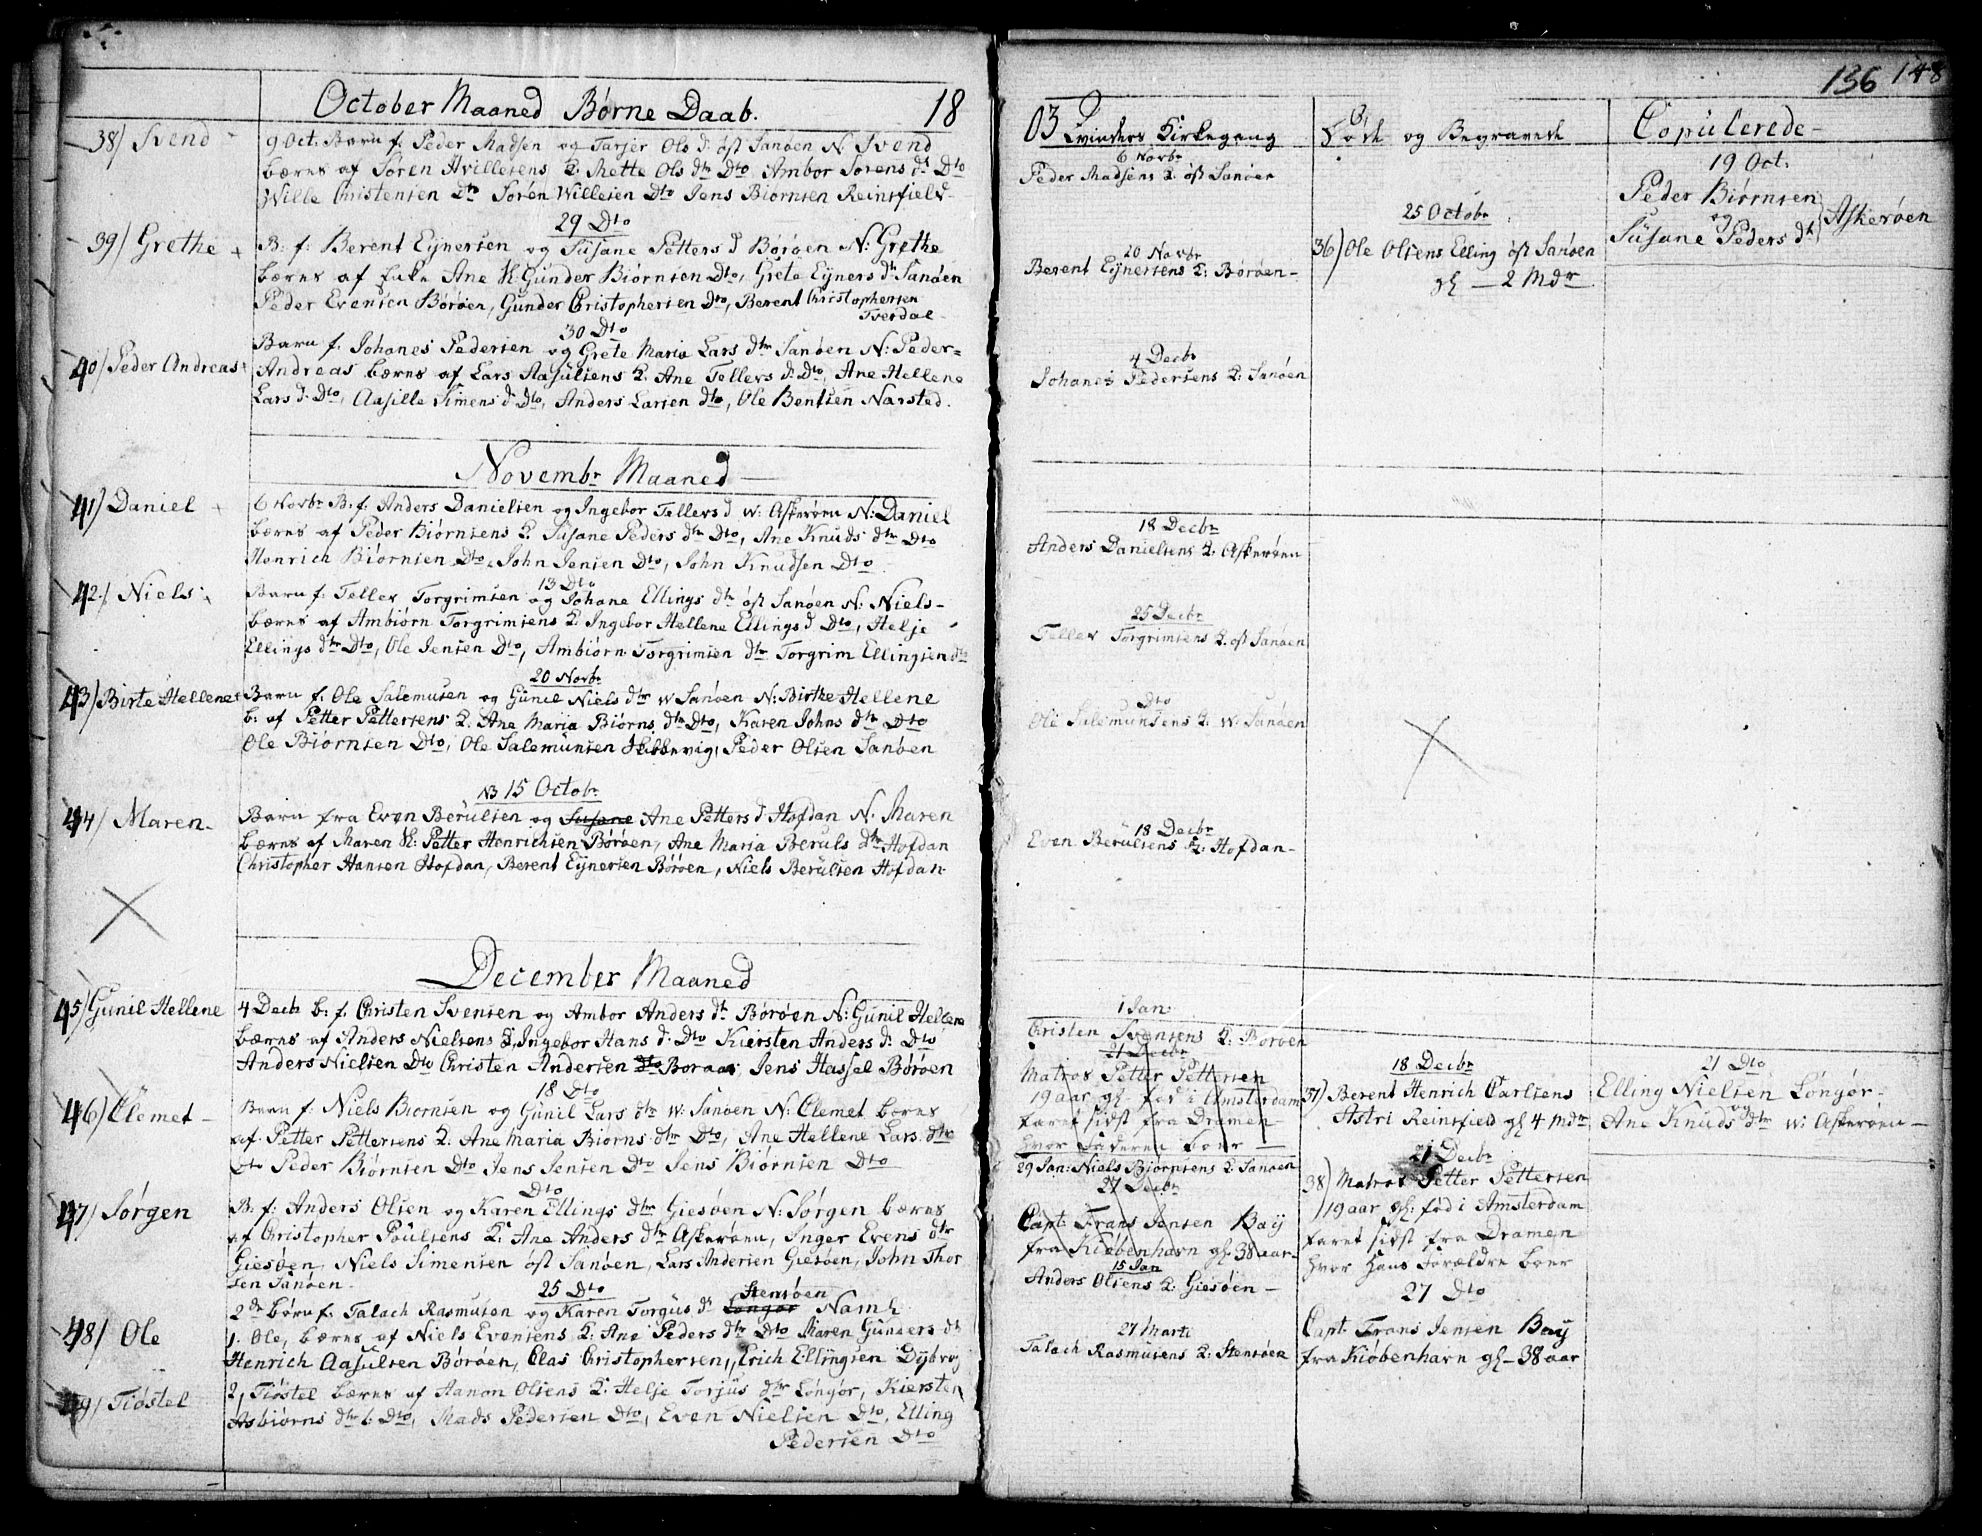 October Maaned Børne Daab. 18
38) Svend
9 Oct. Barn f. Peder Madsen og Tarjer Ols d. øst Sanøen N Svend
bæres af Søren Hvillesens K. Mette Ols dtr Dto Ambor Sørens dr Dto
Wille Christensen Dto Søren Willesen Dto Jens Biørnsen Reinsfield
29 Dto
39) Grethe
B: f: Berent Ejnersen og Susane Petters d Børøen N: Grethe
bæres af Enke Ane K Gunder Biørnsen Dto, Grete Ejners dtr Sanøen
Peder Evensen Børøen, Gunder Christophersen Dto, Berent Christophersen
Tverdal
30 Dto
40) Peder Andreas
Barn f. Johanes Pedersen og Grete Maria Lars dtr Sanøen N: Peder=
Andreas bæres af Lars Aasulsens K. Ane Tellevs d: Dto, Ane Hellene
Lars d: Dto, Aasille Simens d Dto, Anders Larsen dto, Ole Bentsen Narsted.
Novembr Maaned
41) Daniel
6 Novbr B: f: Anders Danielsen og Ingebor Tellevs d w: Askerøen N: Daniel
bæres af Peder Biørnsens K. Susane Peders dtr Dto, Ane Knuds dtr Dto
Henrich Biørnsen Dto, John Jensen Dto, John Knudsen Dto
13 Dto
42) Niels
Barn f: Tellev Torgrimsen og Johane Ellings dtr øst Sanøen N: Niels-
bæres af Ambiørn Torgrimsens K: Ingebor Hellene Ellings d Dto, Helje
Ellings dtr Dto, Ole Jensen Dto, Ambiørn Torgrimsen dtr Torgrim Ellingsen dto
20 Novbr
43) Birte Hellene
Barn f. Ole Salemusen og Gunil Niels dtr w Sanøen N: Birthe Hellene
b: af Petter Pettersens K. Ane Maria Biørns dtr Dto, Karen Johns dtr Dto
Ole Biørnsen Dto, Ole Salemunsen, Peder Olsen Sanøen
NB 15 Octobr
44) Maren
Barn fra Even Berulsen og Susane Ane Petters d Hofdan N. Maren
bæres af Maren K: Petter Henrichsen Børøen, Ane Maria Beruls dtr Hofdan
Christopher Hansen Hofdan, Berent Ejnersen Børøen, Niels Berulsen Hofdan
December Maaned
45) Gunil Hellene
4 Decb b: f: Christen Svensen og Ambor Anders dr Børøen N: Gunil Hellene
bæres af Anders Nielsens K, Ingebor Hans d: Dto Kiersten Anders d: Dto
Anders Nielsen Dto Christen Andersen Dto Boraas, Jens Hassel Børøen
18 Dto
46) Clemet
Barn f: Niels Biornsen og Gunil Lars dtr w: Sanøen N: Clemet bæres
af Petter Pettersens K. Ane Maria Biørns dtr Dto, Ane Hellene Lars dtr
Dto Peder Biørnsen Dto Jens Jensen Dto Jens Biørnsen Dto
Dto
47) Sørgen
B. f: Anders Olsen og Karen Ellings dtr Giesøen N: Sørgen bæres
af Christopher Poulsens K: Ane Anders dtr Askerøen, Inger Evens dtr
Giesøen, Niels Simensen øst Sanøen, Lars Andersen Giesøen, John Thor
sen Sanøen
25 Dto Stensøen
48) Ole
2de børn f. Talach Rasmusen og Karen Torgus dr Longør Namh
1. Ole, bæres af Niels Evensens K: Ane Peders dtr Dto Maren Gunders dr
Henrich Aasulsen Børøen, Clas Christophersen, Erich Ellingsen Dybvig
49) Tiøstel
2, Tiøstel bæres af Aanon Olsens K. Helje Torjus dtr Longør, Kiersten
Asbiørns dtr b. Dto, Mads Pedersen Dto, Even Nielsen Dto, Elling
Pedersen Dto
136 148
03 Qvinders Kirkegang
6 Novbr
Peder Madsens K øst Sanøen
20 Novbr
Berent Ejnersens K: Børøen-
4 Decbr
Johanes Pedersens K: Sanøen
18 Decbr
Anders Danielsens K. Askerøen
25 Decbr
Tellev Torgrimsens K. øst Sanøen
Dto
Ole Salemunsens K: w. Sanøen
18 Decbr
Even Berulsens K: Hofdan-
1 Jan
Christen Svensens K: Borøen
21 Decbr
Matros Petter Pettersen
19 aar gl. fød i Amsterdam
faret sidst fra Dramen
hvor Faderen boer
29 Jan: Niels Biørnsens K: Sanøen
27 Decbr
Capt. Frans Jensen Baij
fra Kiøbenhavn gl. 38 aar-
15 Jan
Anders Olsens K: Giesøen-
27 Marti
Talach Rasmusens K: Stensøen
Døde og Begravede
25 Octobr
36) Ole Olsens Elling øst Sanøen
gl - 2 Mdr
18 Decbr
37) Berent Henrich Carlsens
Astri Reinsfield gl 4 Mdr
21 Decbr
38) Matros Petter Pettersen
19 aar gl: fød i Amsterdam
faret sidst fra Dramen
hvor Hans Forældre boer
27 Dto
Capt. Frans Jensen Baij
fra Kiøbenhavn gl- 38 aar
Copulerede
19 Oct.
Peder Biørnsen
og
Susane Peders dr
Askerøen
21 Dto
Elling Nielsen Longør-
og
Ane Knuds dtr w: Askerøen-